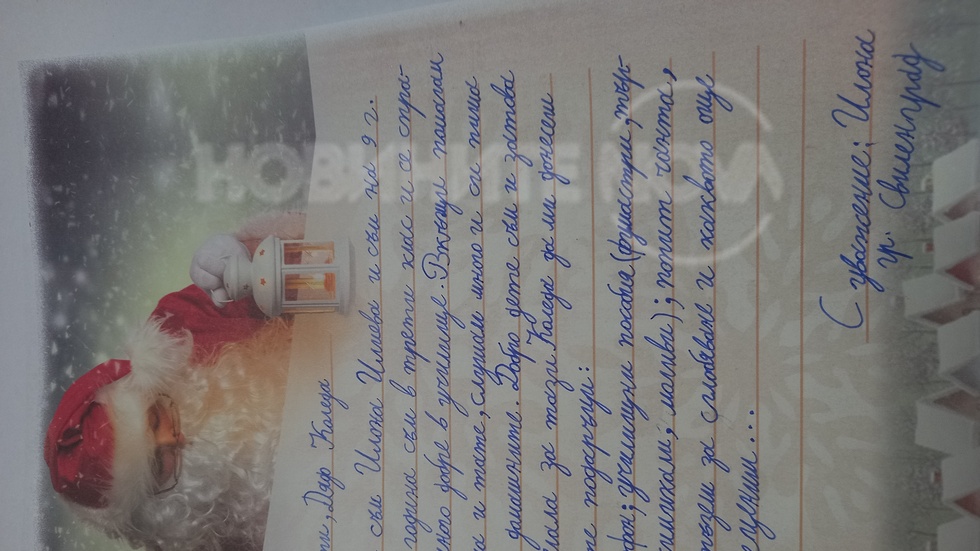 ти, Дядо Коледа
съм Илона Илиева и съм на 9 г.
година съм в трети клас и се спра-
много добре в училище. Вкъщи помагам
и тате, слушам много и си пиша
домашните. Добро дете съм и затова
за тази Коледа да ми донесеш
те подаръци:
фон; училищни пособия (флумастри, тър-
химикали, моливи); попит чанта,
пъзели за сглобяване и каквото още
...
С уважение: Илона
гр. Свиленград
НОВИНИТЕ